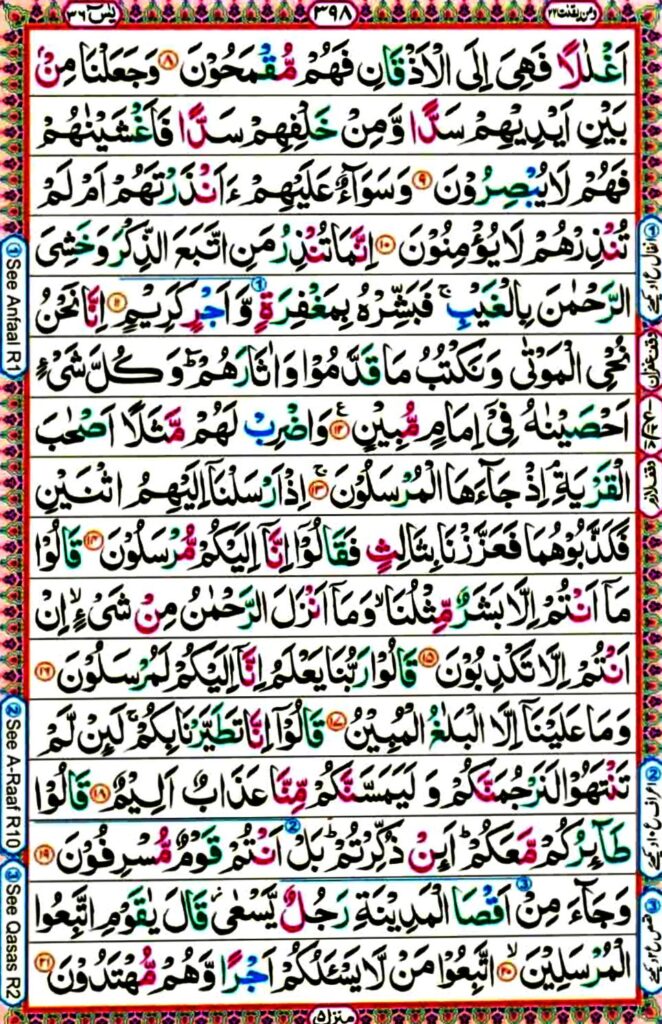 یٰسٓ ۳۶
۳۹۸
ومن یقنت ۲۲
اَغْلٰلًا فَهِىَ اِلَى الْاَذْقَانِ فَهُمْ مُّقْمَحُوْنَ ۸ وَجَعَلْنَا مِنْۢ
بَيْنِ اَيْدِيْهِمْ سَدًّا وَّمِنْ خَلْفِهِمْ سَدًّا فَاَغْشَيْنٰهُمْ
فَهُمْ لَا يُبْصِرُوْنَ ۹ وَسَوَآءٌ عَلَيْهِمْ ءَاَنْذَرْتَهُمْ اَمْ لَمْ
تُنْذِرْهُمْ لَا يُؤْمِنُوْنَ ۱۰ اِنَّمَا تُنْذِرُ مَنِ اتَّبَعَ الذِّكْرَ وَخَشِىَ
الرَّحْمٰنَ بِالْغَيْبِ ۚ فَبَشِّرْهُ بِمَغْفِرَةٍ وَّاَجْرٍ كَرِيْمٍ ۱۱ اِنَّا نَحْنُ
نُحْىِ الْمَوْتٰى وَنَكْتُبُ مَا قَدَّمُوْا وَاٰثَارَهُمْ ؕ وَكُلَّ شَىْءٍ
اَحْصَيْنٰهُ فِىْۤ اِمَامٍ مُّبِيْنٍ ۱۲ وَاضْرِبْ لَهُمْ مَّثَلًا اَصْحٰبَ
الْقَرْيَةِ ۘ اِذْ جَآءَهَا الْمُرْسَلُوْنَ ۱۳ اِذْ اَرْسَلْنَاۤ اِلَيْهِمُ اثْنَيْنِ
فَكَذَّبُوْهُمَا فَعَزَّزْنَا بِثَالِثٍ فَقَالُوْۤا اِنَّاۤ اِلَيْكُمْ مُّرْسَلُوْنَ ۱۴ قَالُوْا
مَاۤ اَنْتُمْ اِلَّا بَشَرٌ مِّثْلُنَا ۙ وَمَاۤ اَنْزَلَ الرَّحْمٰنُ مِنْ شَىْءٍ ۙ اِنْ
اَنْتُمْ اِلَّا تَكْذِبُوْنَ ۱۵ قَالُوْا رَبُّنَا يَعْلَمُ اِنَّاۤ اِلَيْكُمْ لَمُرْسَلُوْنَ ۱۶
وَمَا عَلَيْنَاۤ اِلَّا الْبَلٰغُ الْمُبِيْنُ ۱۷ قَالُوْۤا اِنَّا تَطَيَّرْنَا بِكُمْ ۚ لَئِنْ لَّمْ
تَنْتَهُوْا لَنَرْجُمَنَّكُمْ وَ لَيَمَسَّنَّكُمْ مِّنَّا عَذَابٌ اَلِيْمٌ ۱۸ قَالُوْا
طَآئِرُكُمْ مَّعَكُمْ ؕ اَئِنْ ذُكِّرْتُمْ ؕ بَلْ اَنْتُمْ قَوْمٌ مُّسْرِفُوْنَ ۱۹
وَجَآءَ مِنْ اَقْصَا الْمَدِيْنَةِ رَجُلٌ يَّسْعٰى قَالَ يٰقَوْمِ اتَّبِعُوا
الْمُرْسَلِيْنَ ۙ ۲۰ اتَّبِعُوْا مَنْ لَّا يَسْئَلُكُمْ اَجْرًا وَّهُمْ مُّهْتَدُوْنَ ۲۱
① See Anfaal R1
② See A-Raaf R10
③ See Qasas R2
منزل ۵